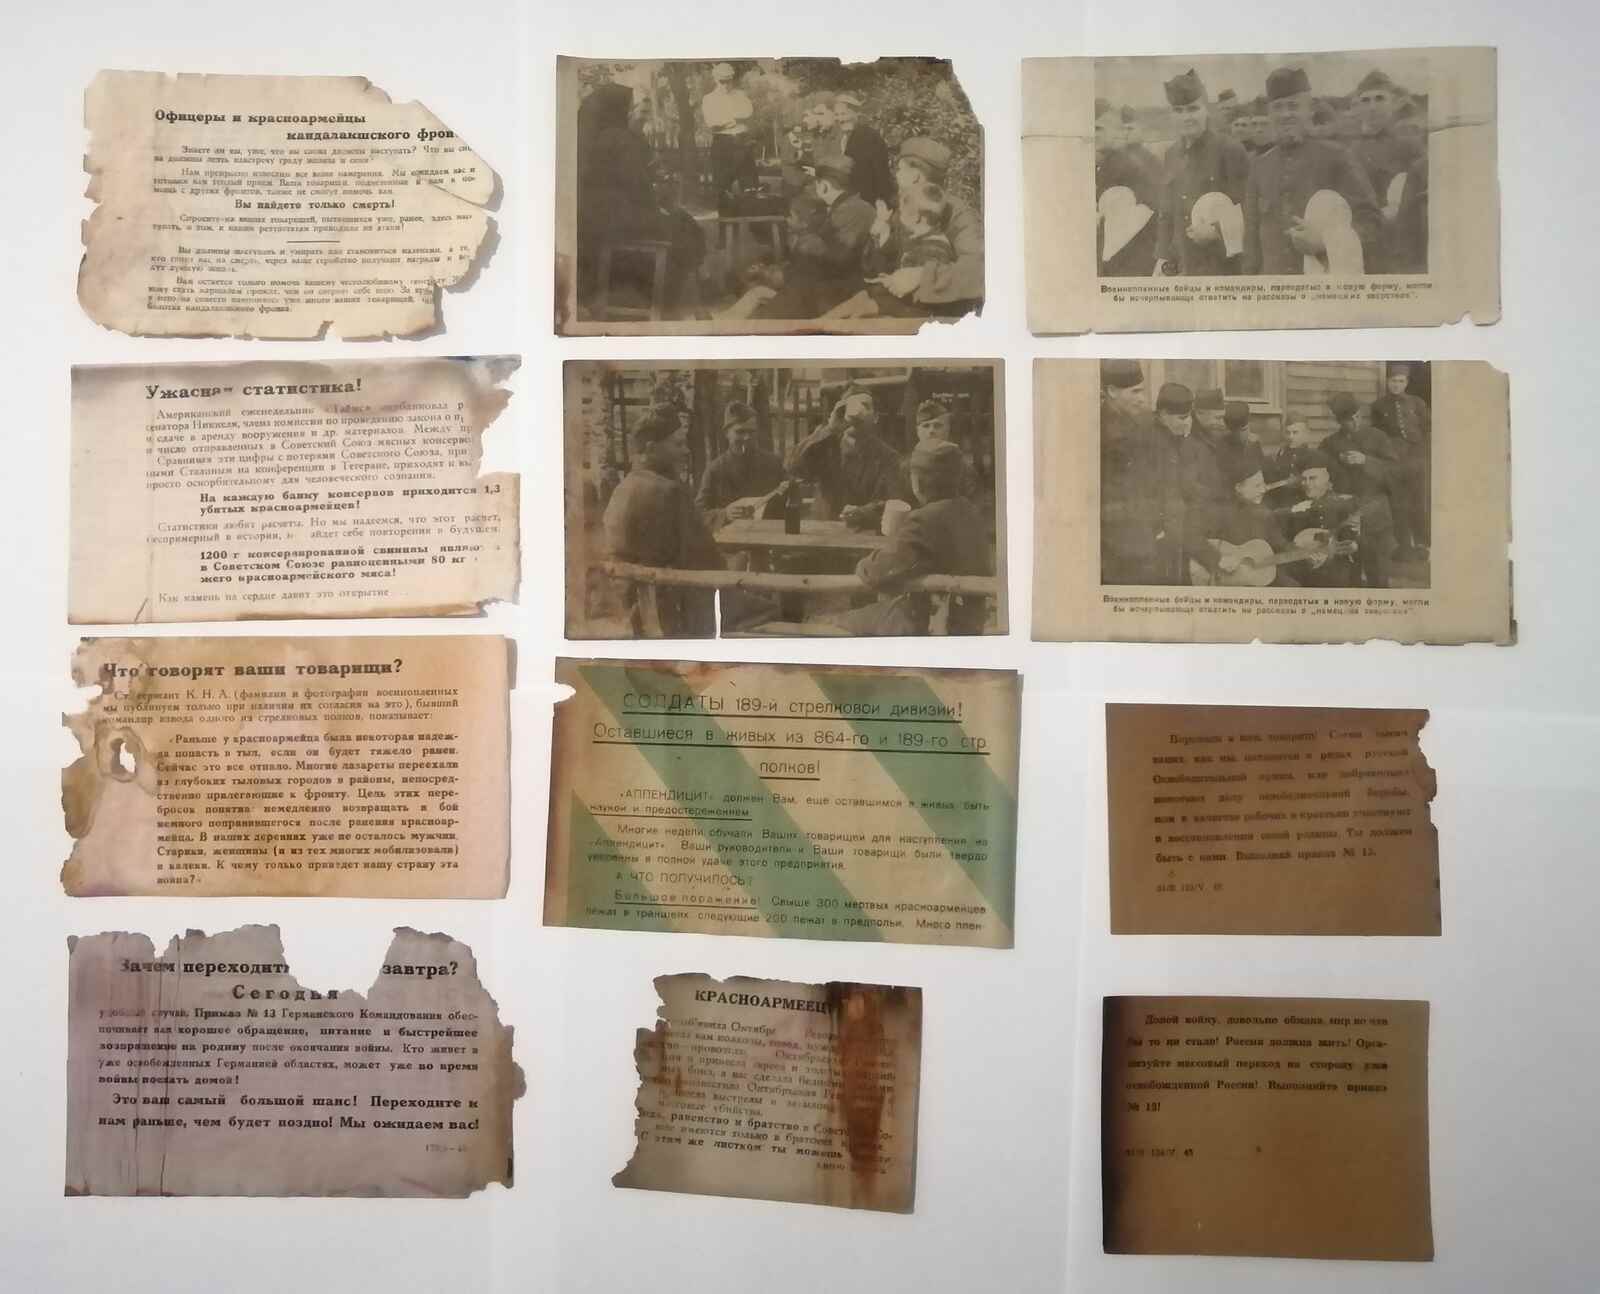 Офицеры и красноармейцы
кандалакшского
Знаете ли вы, уже, что вы снова должны наступать? Что вы
должны лезть навстречу граду железа и огня?
Нам прекрасно известны все ваши намерения. Мы ожидаем вас и
готовим вам теплый прием. Ваши товарищи, подтянутые к вам в по-
мощь с других фронтов, также не смогут помочь вам.
Вы найдете только смерть!
Спросите-ка ваших товарищей, пытавшихся уже, ранее, здесь нас-
тупать, о том, к каким результатам приводили их атаки!
Вы должны наступать и умирать или становиться калеками, а те,
кто гонит вас на смерть, через ваше геройство получают награды и
дут лучшую жизнь.
Вам остается только помочь вашему честолюбивому
стать маршалом прежде, чем он свернет себе шею. За
у него на совести накопилось уже много ваших товарищей,
болотах кандалакшского фронта.
Ужасная статистика!
Американский еженедельник «Таймс» опубликовал
сенатора Никкеля, члена комиссии по проведению закона о
и сдаче в аренду вооружения и др. материалов. Между
и число отправленных в Советский Союз мясных
Сравнивая эти цифры с потерями Советского Союза,
ными Сталиным на конференции в Тегеране, приходят к
просто оскорбительному для человеческого сознания.
На каждую банку консервов приходится 1,3
убитых красноармейцев!
Статистики любят расчеты. Но мы надеемся, что этот расчет,
беспримерный в истории, найдет себе повторения в будущем.
1200 г консервированной свинины
в Советском Союзе равноценными 80 кг
жего красноармейского мяса!
Как камень на сердце давит это открытие . . .
Что говорят ваши товарищи?
Ст. сержант К. Н. А. (фамилии и фотографии военнопленных
мы публикуем только при наличии их согласия на это), бывший
командир взвода одного из стрелковых полков, показывает:
«Раньше у красноармейца была некоторая надеж-
да попасть в тыл, если он будет тяжело ранен.
Сейчас это все отпало. Многие лазареты переехали
из глубоких тыловых городов в районы, непосред-
ственно прилегающие к фронту. Цель этих пере-
бросок понятна: немедленно возвращать в бой
немного поправившегося после ранения красноар-
мейца. В наших деревнях уже не осталось мужчин.
Старики, женщины (и из тех многих мобилизовали)
и калеки. К чему только приведет нашу страну эта
война?»
Зачем переходить завтра?
Сегодня
удобный случай. Приказ № 13 Германского Командования обес-
печивает вам хорошее обращение, питание и быстрейшее
возвращение на родину после окончания войны. Кто живет в
уже освобожденных Германией областях, может уже во время
войны поехать домой!
Это ваш самый большой шанс! Переходите к
нам раньше, чем будет поздно! Мы ожидаем вас!
СОЛДАТЫ 189-й стрелковой дивизии!
Оставшиеся в живых из 864-го и 189-го стр.
полков!
«АППЕНДИЦИТ» должен Вам, еще оставшимся в живых, быть
наукой и предостережением.
Многие недели обучали Ваших товарищей для наступления на
«Аппендицит». Ваши руководители и Ваши товарищи были твердо
уверенны в полной удаче этого предприятия.
А ЧТО ПОЛУЧИЛОСЬ?
Большое поражение! Свыше 300 мертвых красноармейцев
лежат в траншеях, следующие 200 лежат в предпольи. Много плен-
КРАСНОАРМЕЕЦ
Октябрь
вам колхозы, голод,
и принесла евреям золотые
а вас сделала
Октябрьская
выстрелы в затылок
массовые убийства.
равенство и братство в
имеются только в братских
С этим же листком ты можешь
свою
Военнопленные бойцы и командиры, переодетые в новую форму, могли
бы исчерпывающе ответить на рассказы о „немецких зверствах".
Военнопленные бойцы и командиры, переодетые в новую форму, могли
бы исчерпывающе ответить на рассказы о „немецких зверствах".
Переходи к нам, товарищ! Сотни тысяч
таких, как мы, находятся в рядах русской
Освободительной армии, или добровольно
помогают делу освободительной борьбы,
или в качестве рабочих и крестьян участвуют
в восстановлении своей родины. Ты должен
быть с нами. Выполняй приказ № 13.
Долой войну, довольно обмана, мир во что
бы то ни стало! Россия должна жить! Орга-
низуйте массовый переход на сторону уже
освобожденной России! Выполняйте приказ
№ 13!